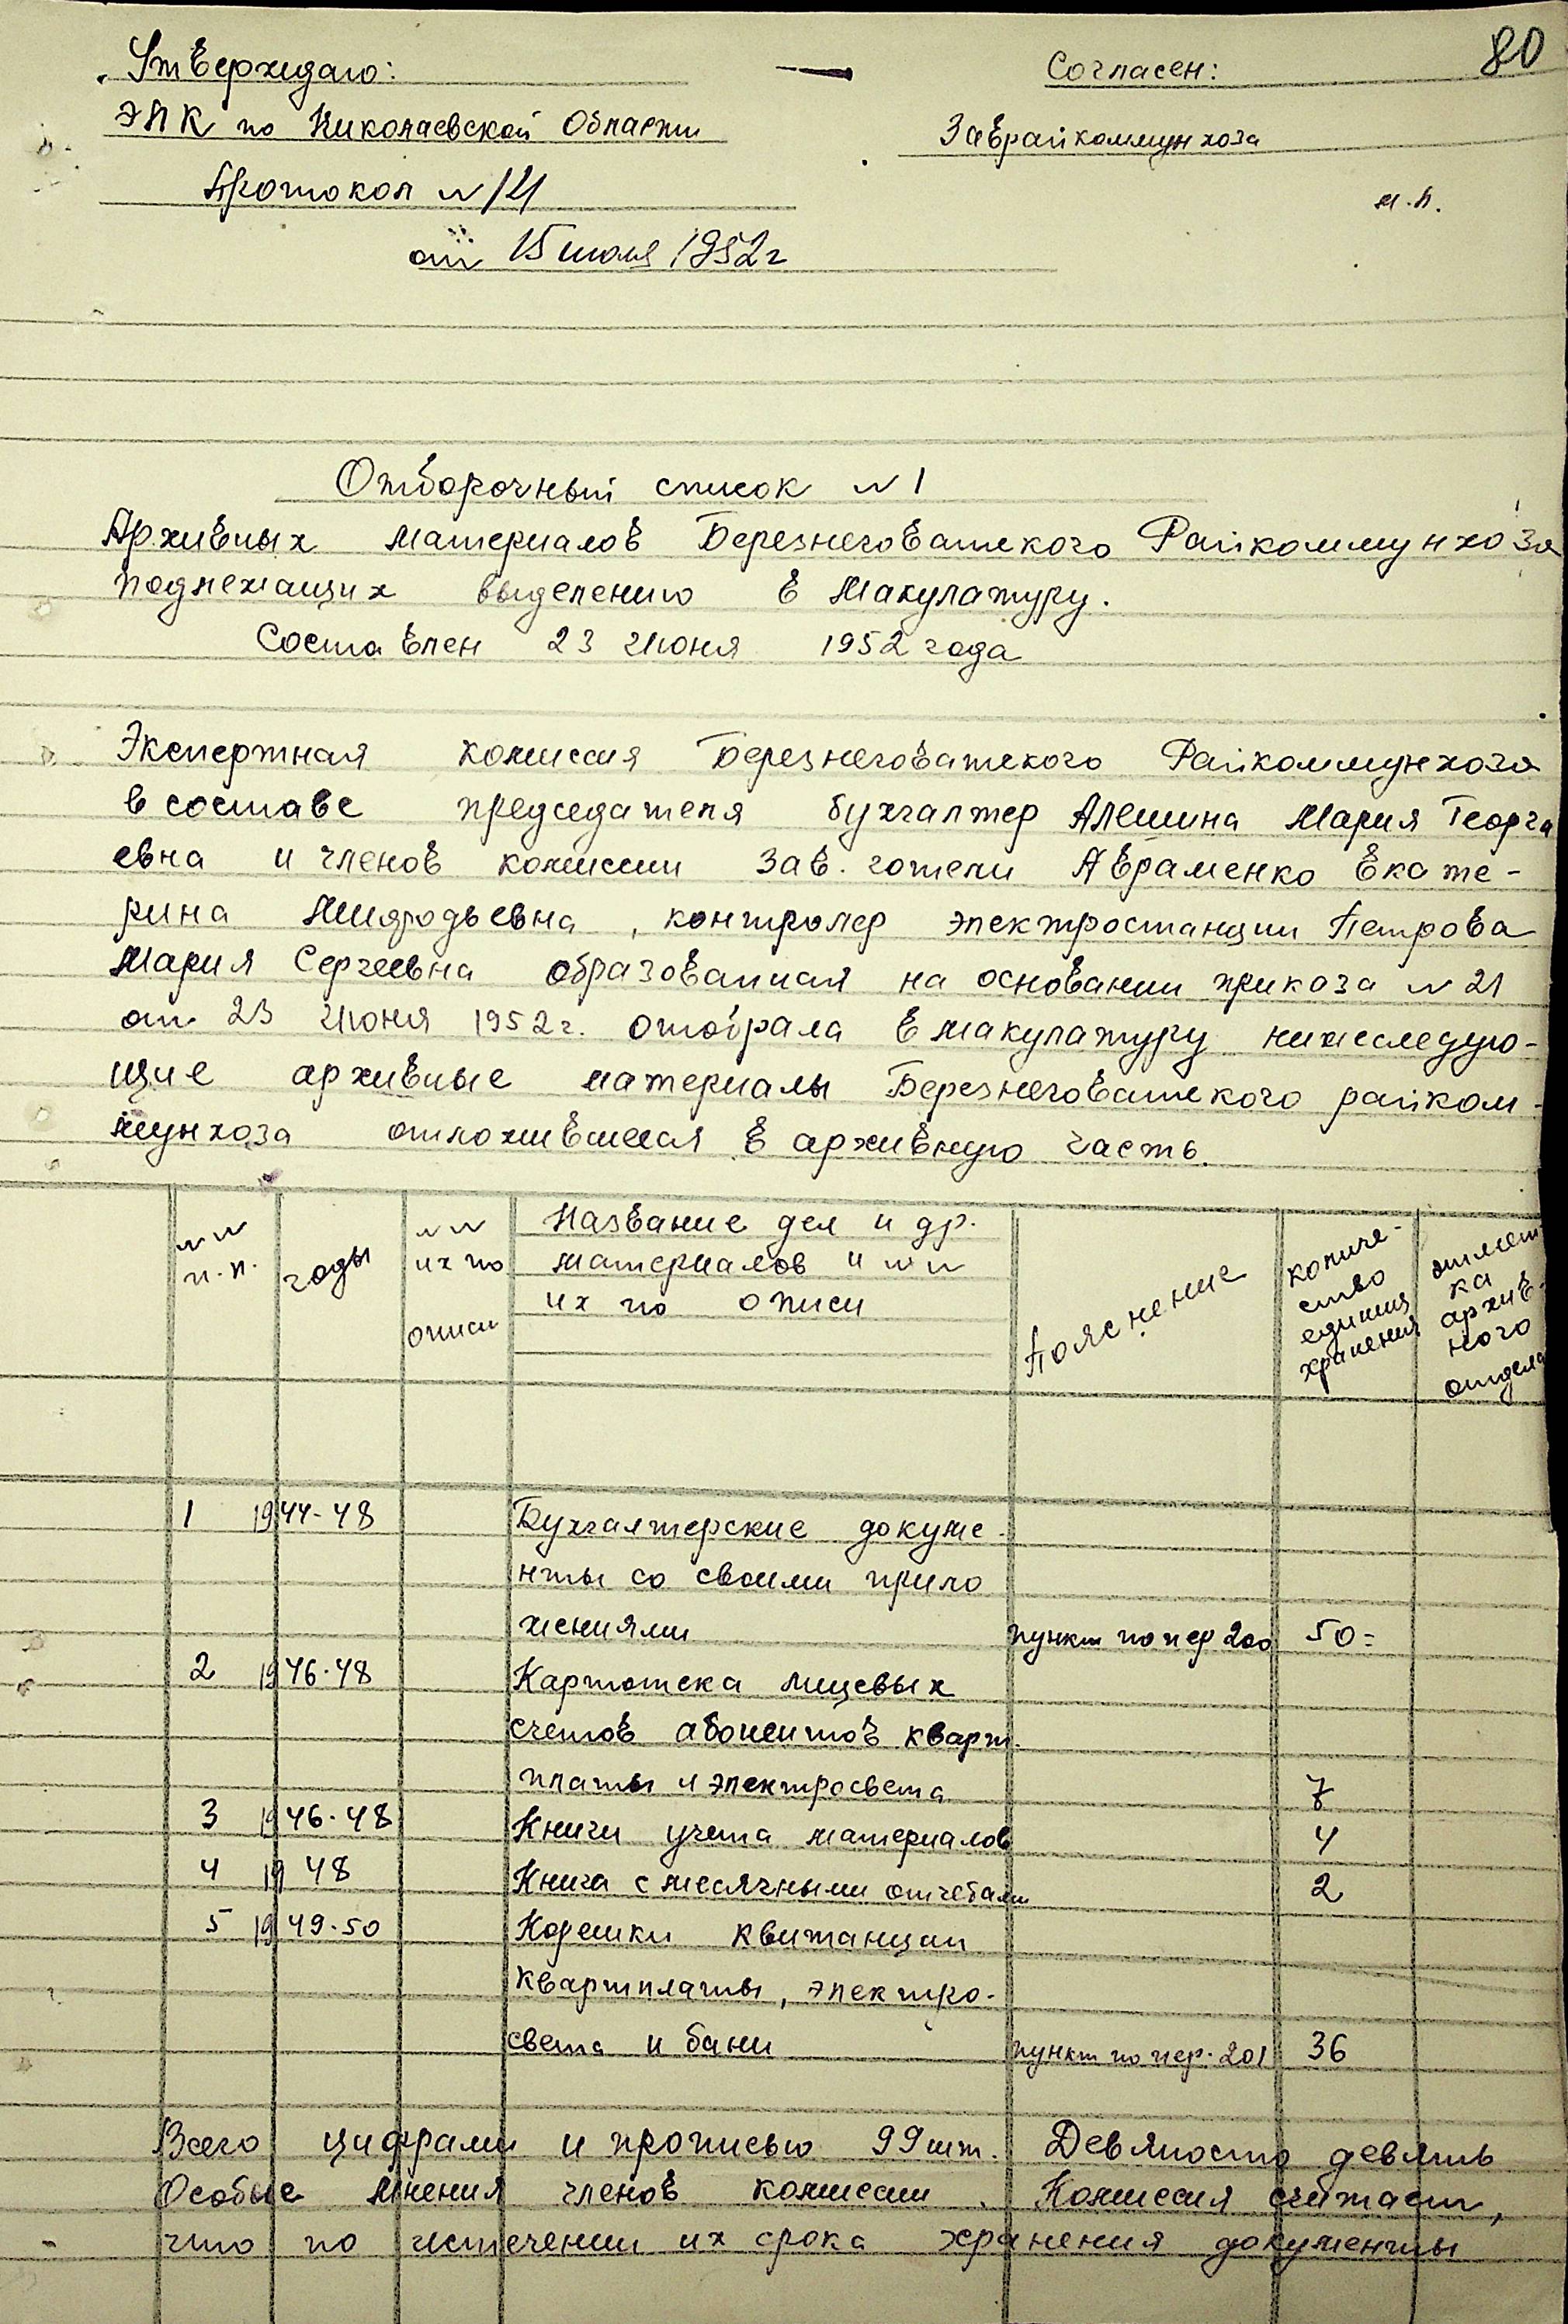 80
Утверждаю:
ЭПК по Николаевской Области
Протокол №14
от 15 июля 1952г
Согласен:
Заврайкоммунхоза
м.п.
Отборочный список №1
Архивных материалов Березнеговатского Райкоммунхоза
подлежащих выделению в Макулатуру.
Составлен 23 Июня 1952 года
Экспертная комиссия Березнеговатского Райкоммунхоза
в составе председателя бухгалтер Алешина Мария Георги
евна и членов комиссии Зав. готели Авраменко Екате-
рина , контролер электростанции Петрова
Мария Сергеевна образованная на основании приказа №21
от 23 Июня 1952г. отобрала в макулатуру нижеследую-
щие архивные материалы Березнеговатского райком-
мунхоза отложившиеся в архивную часть.
№№ п.п.
годы
№№ их по описи
Название дел и др.
материалов и №№
их по описи
Пояснение
количе-
ство
единиц
хранения
отмет
ка
архив-
ного
отдела
1 1944-48 Бухгалтерские докуме-
нты со своими прило
жениями пункт по пер 200 50=
2 1946-48 Картотека лицевых
счетов абонентов кварт.
платы и электросвета 7
3 1946-48 Книги учета материалов 4
4 1948 Книга с месячными отчетами 2
5 1949-50 Корешки квитанции
квартплаты, электро-
света и бани пункт по пер. 201 36
Всего цифрами и прописью 99 шт. Девяносто девять
Особые мнения членов комиссии. Комиссия считает,
что по истечении их срока хранения документы